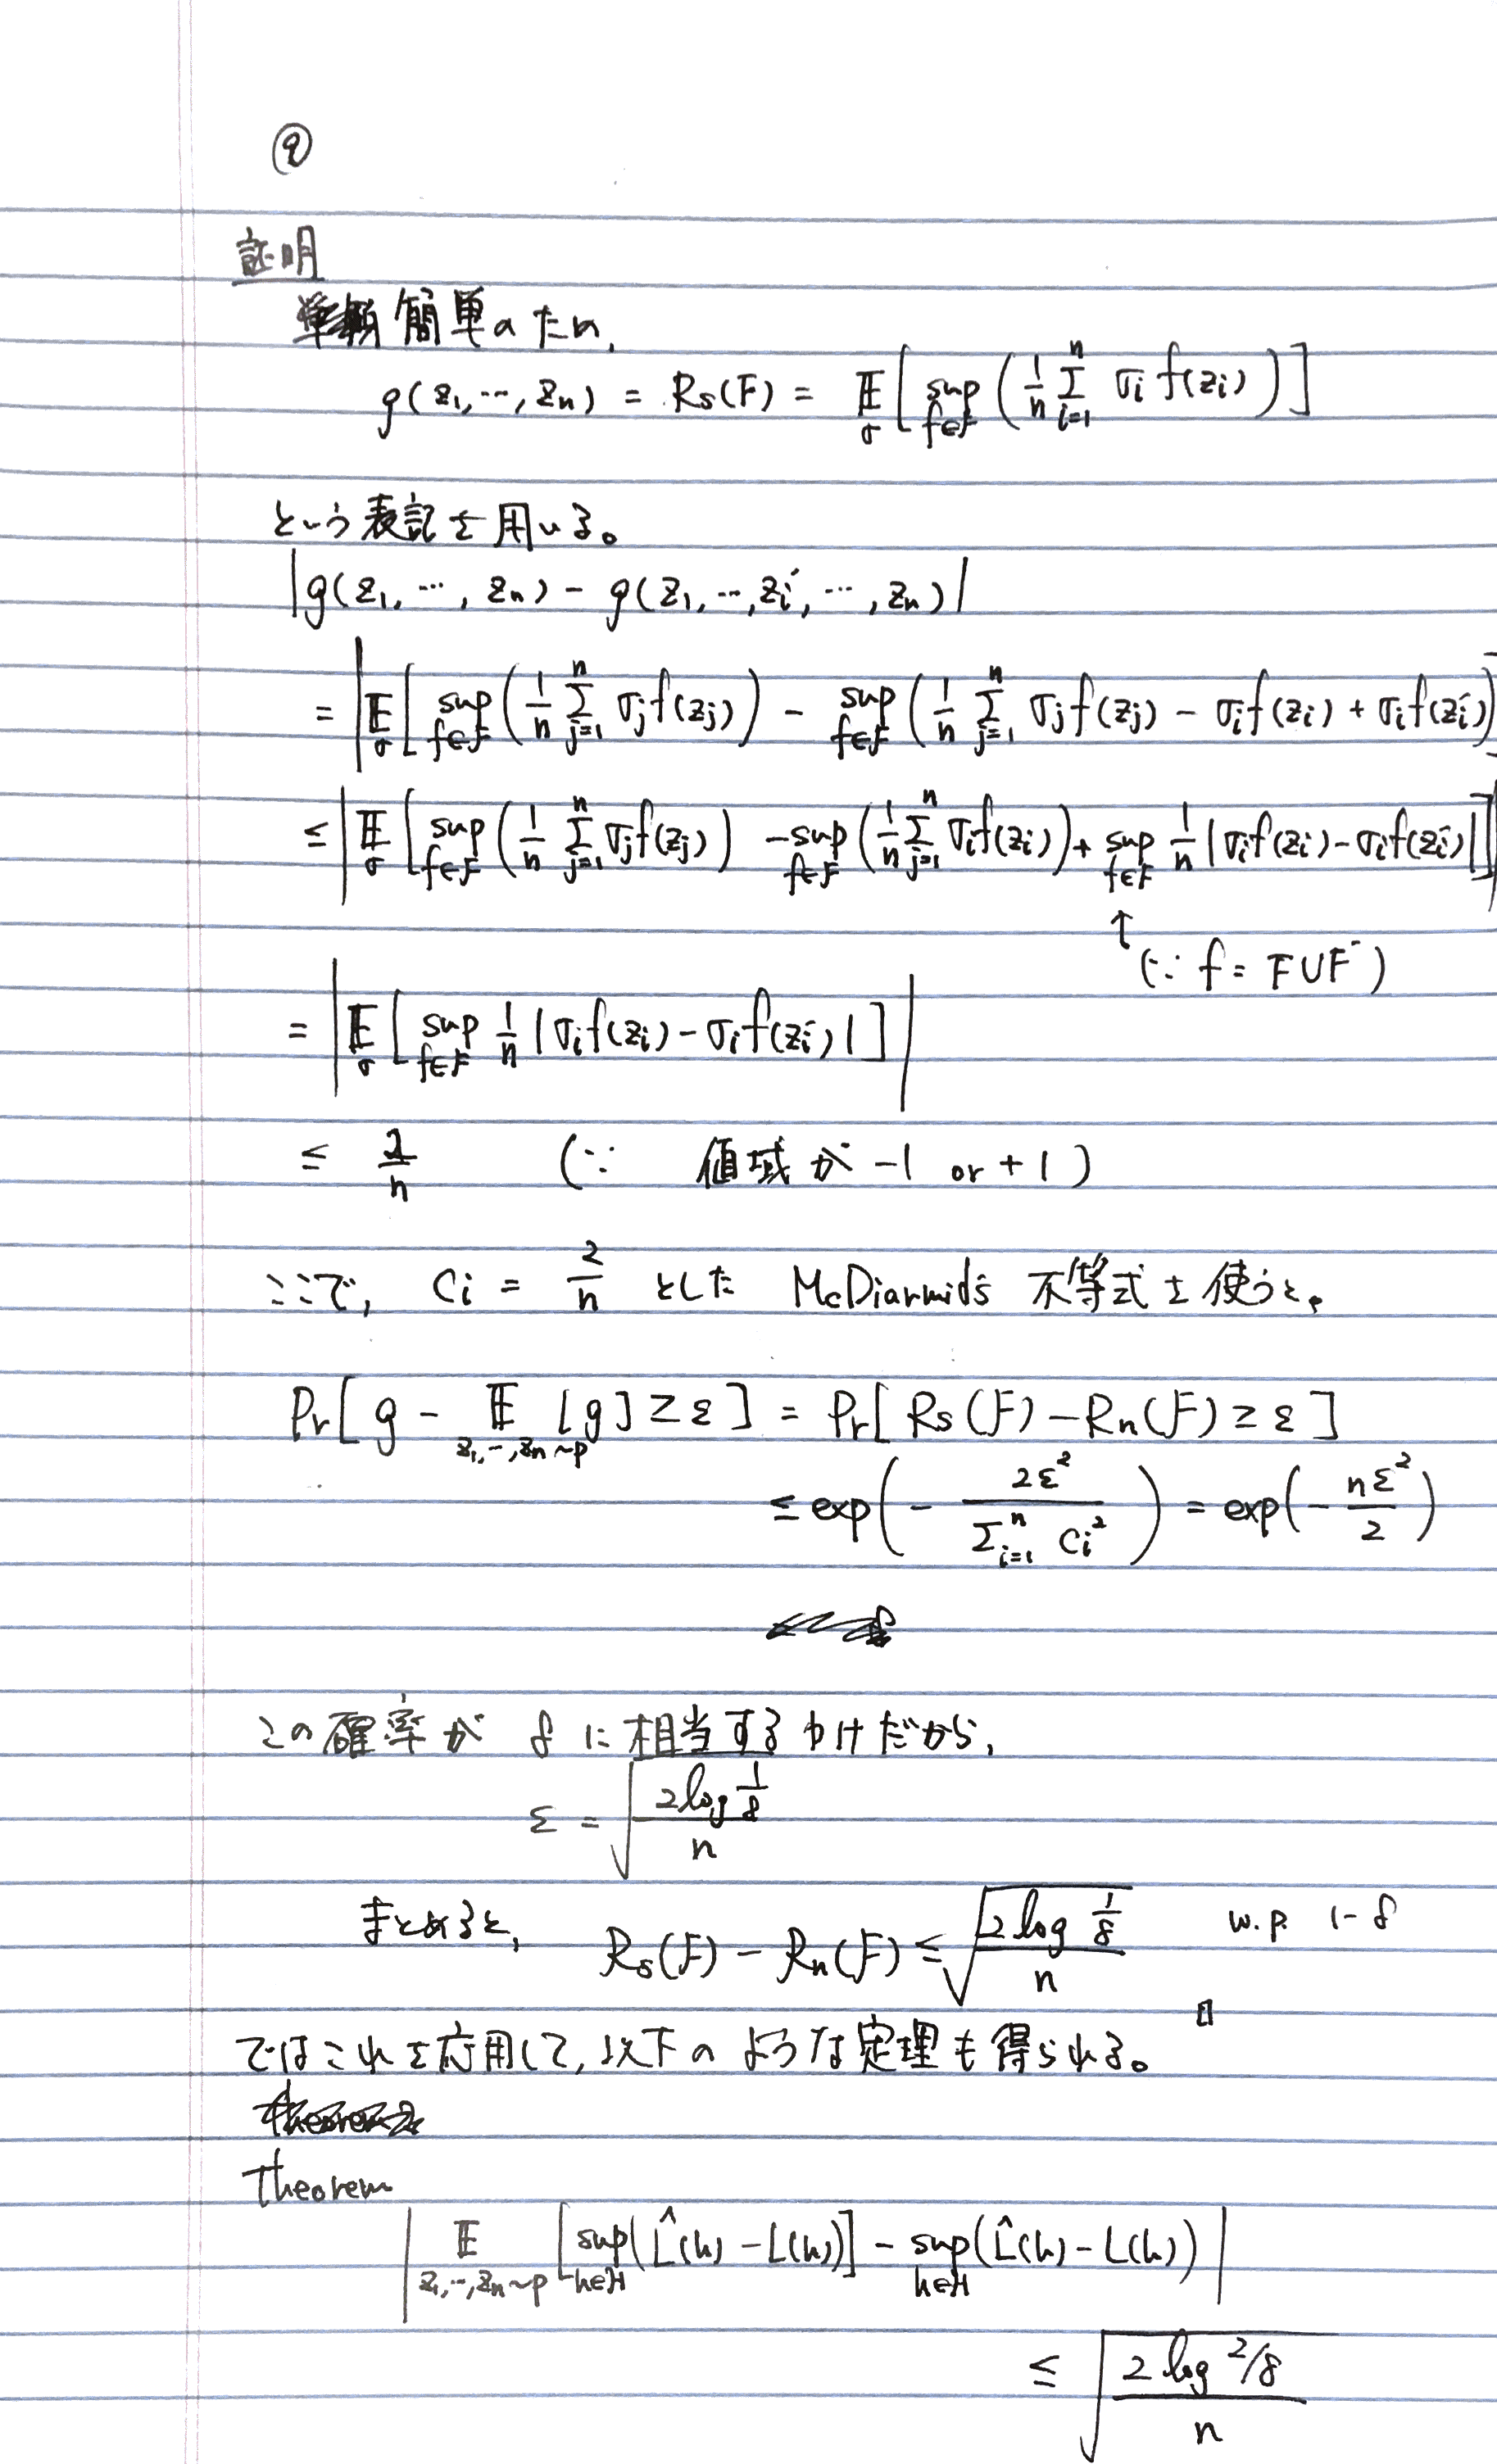 ⑨
証明
簡単のため,
g(z₁, …, zₙ) = Rs(F) = 𝔼_σ [ sup_{f∈F} ( 1/n Σ_{i=1}^n σᵢ f(zᵢ) ) ]
という表記を用いる。
| g(z₁, …, zₙ) − g(z₁, …, zᵢ', …, zₙ) |
= | 𝔼_σ [ sup_{f∈F} ( 1/n Σ_{j=1}^n σⱼ f(zⱼ) ) − sup_{f∈F} ( 1/n Σ_{j=1}^n σⱼ f(zⱼ) − σᵢ f(zᵢ) + σᵢ f(zᵢ') ) ]
≤ | 𝔼_σ [ sup_{f∈F} ( 1/n Σ_{j=1}^n σⱼ f(zⱼ) ) − sup_{f∈F} ( 1/n Σ_{j=1}^n σᵢ f(zᵢ) ) + sup_{f∈F} 1/n | σᵢ f(zᵢ) − σᵢ f(zᵢ') | ] |
↑
(∵ f = F∪F⁻)
= | 𝔼_σ [ sup_{f∈F} 1/n | σᵢ f(zᵢ) − σᵢ f(zᵢ') | ] |
≤ 2/n (∵ 値域が −1 or +1)
ここで, Cᵢ = 2/n とした McDiarmid's 不等式を使うと,
Pr[ g − 𝔼_{z₁,…,zₙ~p} [g] ≥ ε ] = Pr[ Rs(F) − Rn(F) ≥ ε ]
≤ exp( − 2ε² / Σ_{i=1}^n Cᵢ² ) = exp( − nε² / 2 )
この確率が δ に相当するわけだから,
ε = √( 2 log 1/δ / n )
まとめると, Rs(F) − Rn(F) ≤ √( 2 log 1/δ / n ) w.p. 1−δ
□
ではこれを応用して, 以下のような定理も得られる。
Theorem
| 𝔼_{z₁,…,zₙ~p} [ sup_{h∈H} ( L̂(h) − L(h) ) ] − sup_{h∈H} ( L̂(h) − L(h) ) |
≤ √( 2 log 2/δ / n )